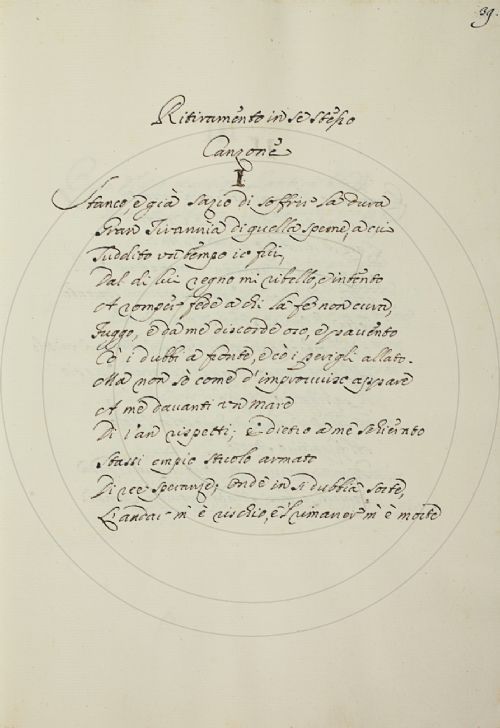 39.
Ritiramento in se stesso
Canzone
I
Stanco e già sazio di soffrir la dura
Gran Tirannia di quella speme, a cui
Suddito un tempo io fui,
Dal di lui regno mi ribello, e intento
A romper fede a chi la fe non cura,
Fuggo, e da me discorde oso, e pavento
Cò i dubbi a fronte, e cò i perigli allato.
Ma non sò come d'improvviso appare
A me davanti un mare
Di rispetti; e dietro a me schierato
Stassi empio stuolo armato
Di ree speranze; onde in sì dubbia sorte,
L'andar m'è rischio, e'l rimaner m'è morte